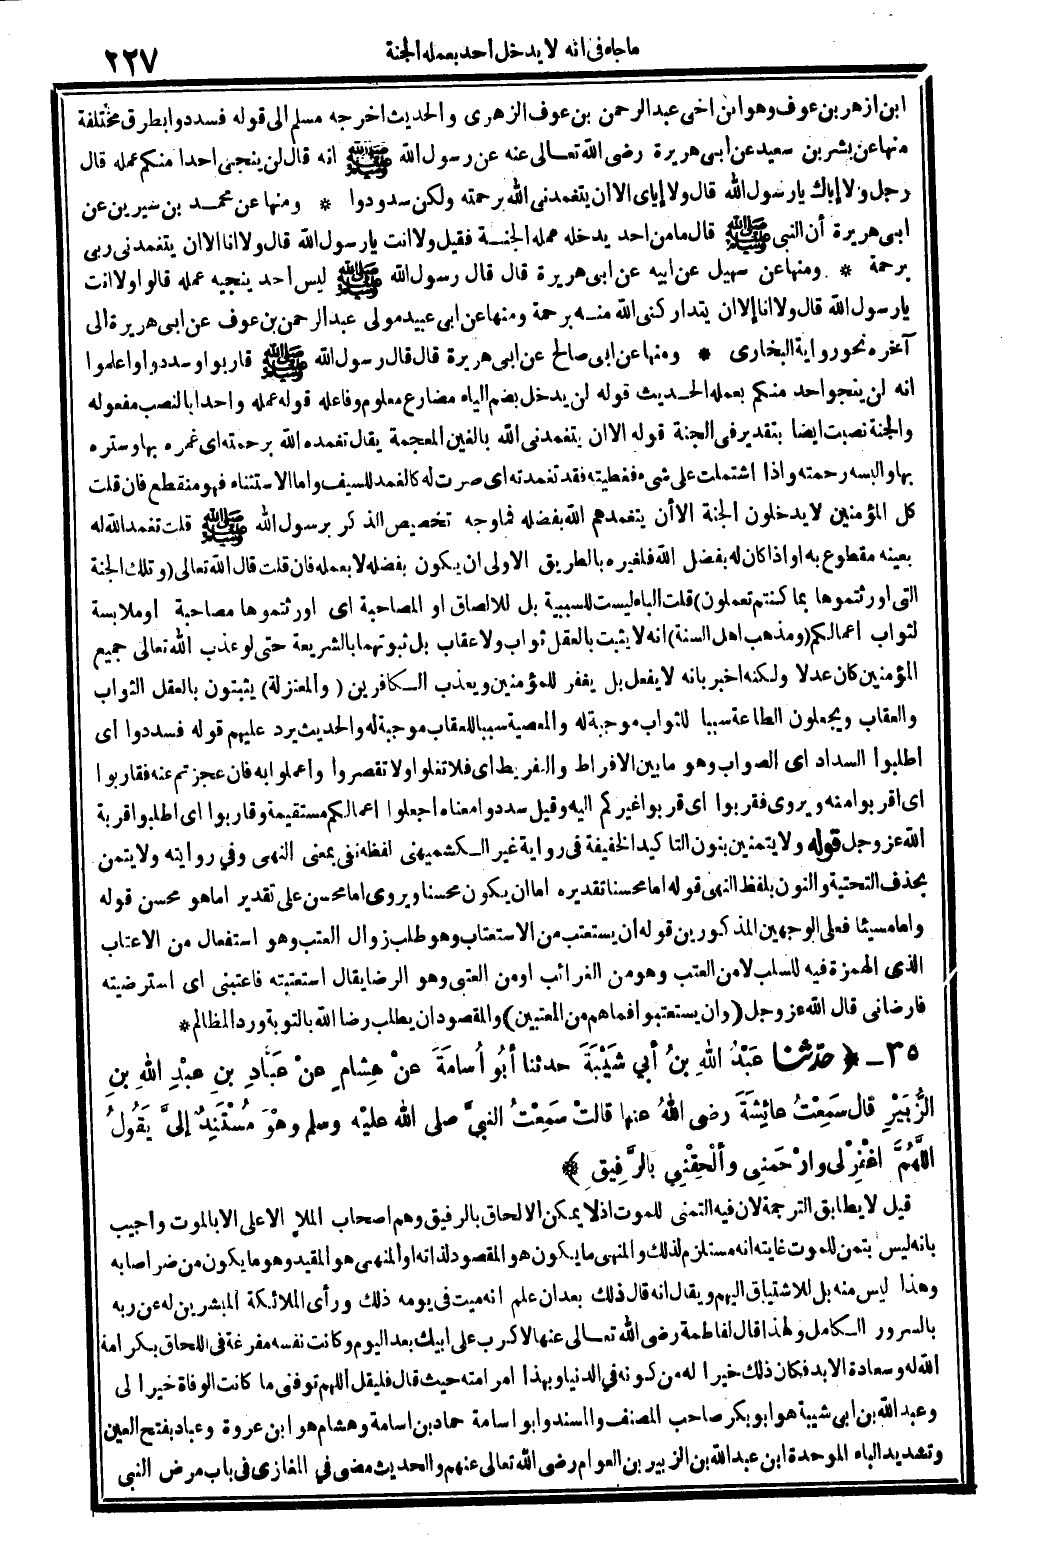 ما جاء فى انه لا يدخل أحد بعمله الجنة
٢٢٧
ابن ازهر بن عوف وهو ابن اخى عبد الرحمن بن عوف الزهرى والحديث اخرجه مسلم الى قوله فسددوا بطرق مختلفة
منها عن بشر بن سعيد عن أبى هريرة رضى الله تعالى عنه عن رسول الله ﷺ انه قال لن ينجى احدا منكم عمله قال
رجل ولا إياك يا رسول الله قال ولا إياى الا ان يتغمدنى الله برحمته ولكن سددوا * ومنها عن محمد بن سيرين عن
ابى هريرة أن النبى ﷺ قال ما من احد يدخله عمله الجنة فقيل ولا أنت يا رسول الله قال ولا انا الا ان يتغمدنى ربى
برحمة * ومنها عن سهيل عن ابيه عن ابى هريرة قال قال رسول الله ﷺ ليس أحد ينجيه عمله قالوا ولا انت
يا رسول الله قال ولا انا إلا ان يتداركنى الله منه برحمة ومنها عن ابى عبيد مولى عبد الرحمن بن عوف عن ابى هريرة الى
آخره نحو رواية البخارى * ومنها عن ابى صالح عن ابى هريرة قال قال رسول الله ﷺ قاربوا وسددوا واعلموا
انه لن ينجو احد منكم بعمله الحديث قوله لن يدخل بضم الياء مضارع معلوم وفاعله قوله عمله واحدا بالنصب مفعوله
والجنة نصبت ايضا بتقدير فى الجنة قوله الا ان يتغمدنى الله بالغين المعجمة يقال تغمده الله برحمته اى غمره بها وستره
بها والبسه رحمته واذا اشتملت على شىء فغطيته فقد تغمدته اى صرت له كالغمد للسيف واما الاستثناء فهو منقطع فان قلت
كل المؤمنين لا يدخلون الجنة الا أن يتغمدهم الله بفضله فما وجه تخصيص الذكر برسول الله ﷺ قلت تغمد الله له
بعينه مقطوع به او اذا كان له بفضل الله فلغيره بالطريق الاولى ان يكون بفضله لا بعمله فان قلت قال الله تعالى (وتلك الجنة
التى اورثتموها بما كنتم تعملون) قلت الباء ليست للسببية بل للالصاق او المصاحبة اى اورثتموها مصاحبة او ملابسة
لثواب اعمالكم (ومذهب اهل السنة) انه لا يثبت بالعقل ثواب ولا عقاب بل ثبوتهما بالشريعة حتى لو عذب الله تعالى جميع
المؤمنين كان عدلا ولكنه اخبر بانه لا يفعل بل يغفر للمؤمنين ويعذب الكافرين (والمعتزلة) يثبتون بالعقل الثواب
والعقاب ويجعلون الطاعة سببا للثواب موجبة له والمعصية سببا للعقاب موجبة له والحديث يرد عليهم قوله فسددوا اى
اطلبوا السداد اى الصواب وهو ما بين الافراط والتفريط اى فلا تغلوا ولا تقصروا واعملوا به فان عجزتم عنه فقاربوا
اى اقربوا منه ويروى فقربوا اى قربوا غيركم اليه وقيل سددوا معناه اجعلوا اعمالكم مستقيمة وقاربوا اى اطلبوا قربة
الله عز وجل قوله ولا يتمنين بنون التاكيد الخفيفة فى رواية غير الكشميهنى لفظه نفى بمعنى النهى وفي روايته ولا يتمن
بحذف التحتية والنون بلفظ النهى قوله اما محسنا تقديره اما ان يكون محسنا ويروى اما محسن على تقدير اما هو محسن قوله
واما مسيئا فعلى الوجهين المذكورين قوله ان يستعتب من الاستعتاب وهو طلب زوال العتب وهو استفعال من الاعتاب
الذى الهمزة فيه للسلب لا من العتب وهو من الغرائب او من العتبى وهو الرضا يقال استعتبته فاعتبنى اى استرضيته
فارضانى قال الله عز وجل (وان يستعتبوا فما هم من المعتبين) والمقصود ان يطلب رضا الله بالتوبة ورد المظالم *
٣٥ ـ ﴿ حدثنا عَبْدُ اللهِ بنُ أبي شَيْبَةَ حدثنا أبُو أُسامَةَ عنْ هِشامٍ عنْ عَبَّادِ بنِ عبْدِ اللهِ بنِ
الزُّبَيْرِ قال سَمِعْتُ عائِشَةَ رضى اللهُ عنها قالتْ سَمِعْتُ النبيَّ صلى الله عليْه وسلم وهْوَ مُسْتَنِدٌ إلىَّ يَقُولُ
اللَّهُمَّ اغْفِرْ لى وارْحَمنِى وألْحِقْنِي بالرَّفِيقِ * ﴾
قيل لا يطابق الترجمة لان فيه التمنى للموت اذ لا يمكن الالحاق بالرفيق وهم اصحاب الملإ الاعلى الا بالموت واجيب
بانه ليس بتمن للموت غايته انه مستلزم لذلك والمنهى ما يكون هو المقصود لذاته او المنهى هو المقيد وهو ما يكون من ضر اصابه
وهذا ليس منه بل للاشتياق اليهم ويقال انه قال ذلك بعد ان علم انه ميت فى يومه ذلك ورأى الملائكة المبشرين له عن ربه
بالسرور الكامل ولهذا قال لفاطمة رضى الله تعالى عنها لا كرب على ابيك بعد اليوم وكانت نفسه مفرغة فى اللحاق بكرامة
الله له وسعادة الابد فكان ذلك خيرا له من كونه في الدنيا وبهذا امر امته حيث قال فليقل اللهم توفنى ما كانت الوفاة خيرا لى
وعبد الله بن ابى شيبة هو ابو بكر صاحب المصنف والمسند وابو اسامة حماد بن اسامة وهشام هو ابن عروة وعباد بفتح العين
وتشديد الباء الموحدة ابن عبد الله بن الزبير بن العوام رضى الله تعالى عنهم والحديث مضى في المغازى فى باب مرض النبى